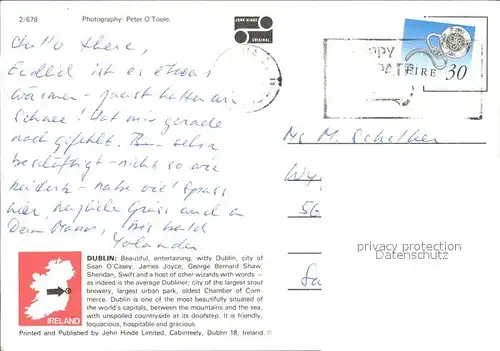 2/678 Photography: Peter O'Toole.
JOHN HINDE
ORIGINAL
ÉIRE 30
Hallo there,
Endlich ist es etwas
wärmer – juerst hatten wir
Schnee! Hat mir gerade
noch gefehlt. Bin sehr
beschäftigt – nicht so wie
– habe viel Spass
hier, herzliche Grüss und an
Dein Mann, bis bald
Yolanda
Ms M. Schalker
56
privacy protection
Datenschutz
DUBLIN: Beautiful, entertaining, witty Dublin, city of
Sean O'Casey, James Joyce, George Bernard Shaw,
Sheridan, Swift and a host of other wizards with words —
as indeed is the average Dubliner; city of the largest stout
brewery, largest urban park, oldest Chamber of Com-
merce. Dublin is one of the most beautifully situated of
the world's capitals, between the mountains and the sea,
with unspoiled countryside at its doorstep. It is friendly,
loquacious, hospitable and gracious.
IRELAND
Printed and Published by John Hinde Limited, Cabinteely, Dublin 18, Ireland.